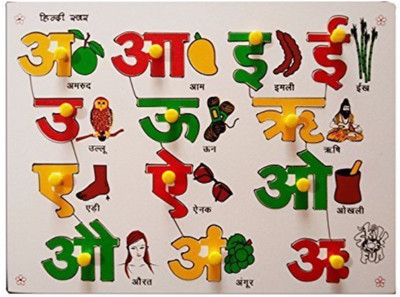 हिन्दी स्वर
अ आ इ ई
अमरुद आम इमली ईख
उ ऊ ऋ
उल्लू ऊन ऋषि
ए ऐ ओ
एड़ी ऐनक ओखली
औ अं अः
औरत अंगूर